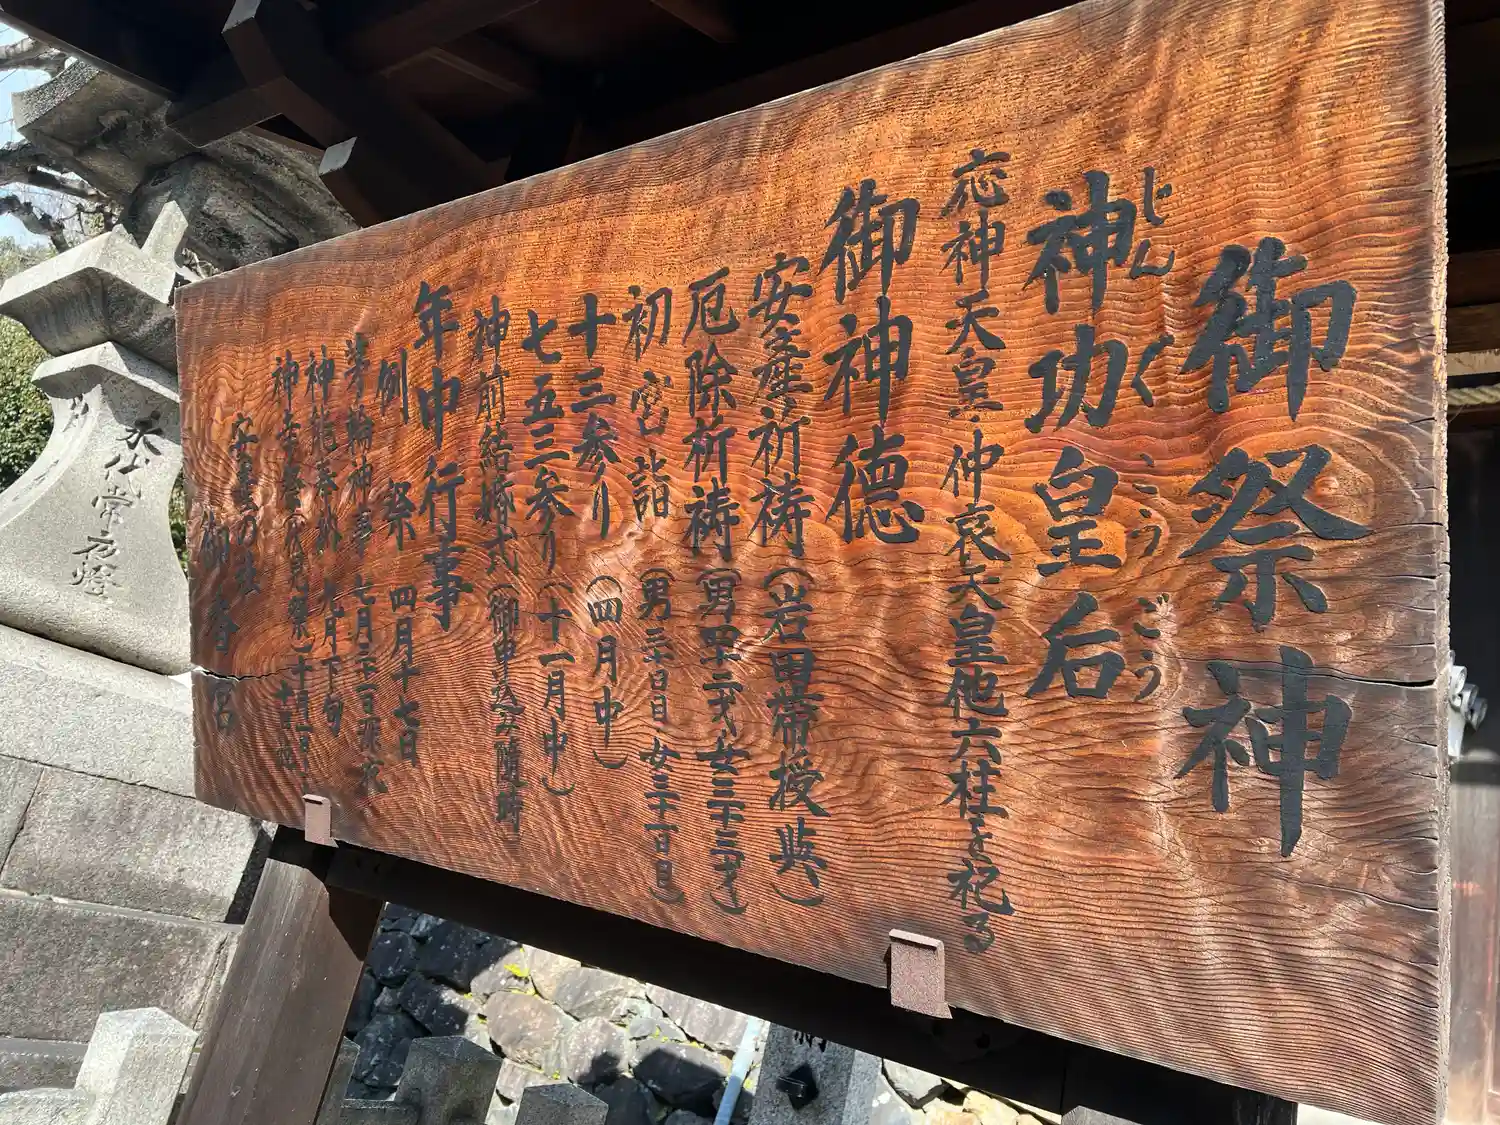 御祭神
じんぐうこうごう
神功皇后
応神天皇・仲哀天皇他六柱を祀る
御神徳
安産祈祷（岩田帯授与）
厄除祈祷（男四二才女三十三才）
初宮詣（男三十日目・女三十一日目）
十三参り（四月中）
七五三参り（十一月中）
神前結婚式（御申込み随時）
年中行事
例祭 四月十七日
茅輪神事 七月三十一日
神能奉納 九月下旬
神幸祭
御香宮
永代常夜燈